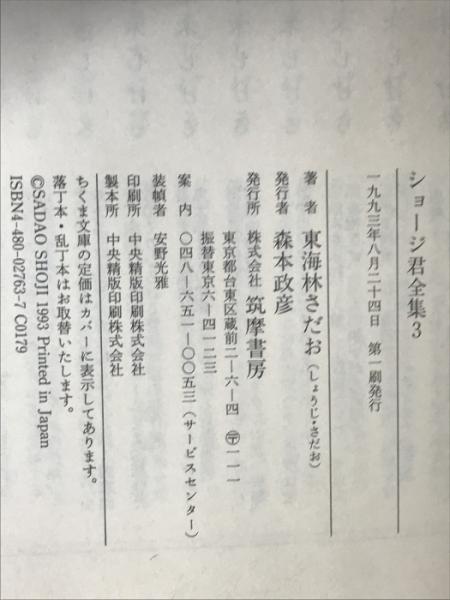 ショージ君全集3
一九九三年八月二十四日　第一刷発行
著　者　東海林さだお（しょうじ・さだお）
発行者　森本政彦
発行所　株式会社　筑摩書房
東京都台東区蔵前二―六―四　〒一一一
振替東京六―四一二三
案　内　〇四八―六五一―〇〇五三（サービスセンター）
装幀者　安野光雅
印刷所　中央精版印刷株式会社
製本所　中央精版印刷株式会社
ちくま文庫の定価はカバーに表示してあります。
落丁本・乱丁本はお取替いたします。
©SADAO SHOJI 1993 Printed in Japan
ISBN4-480-02763-7 C0179